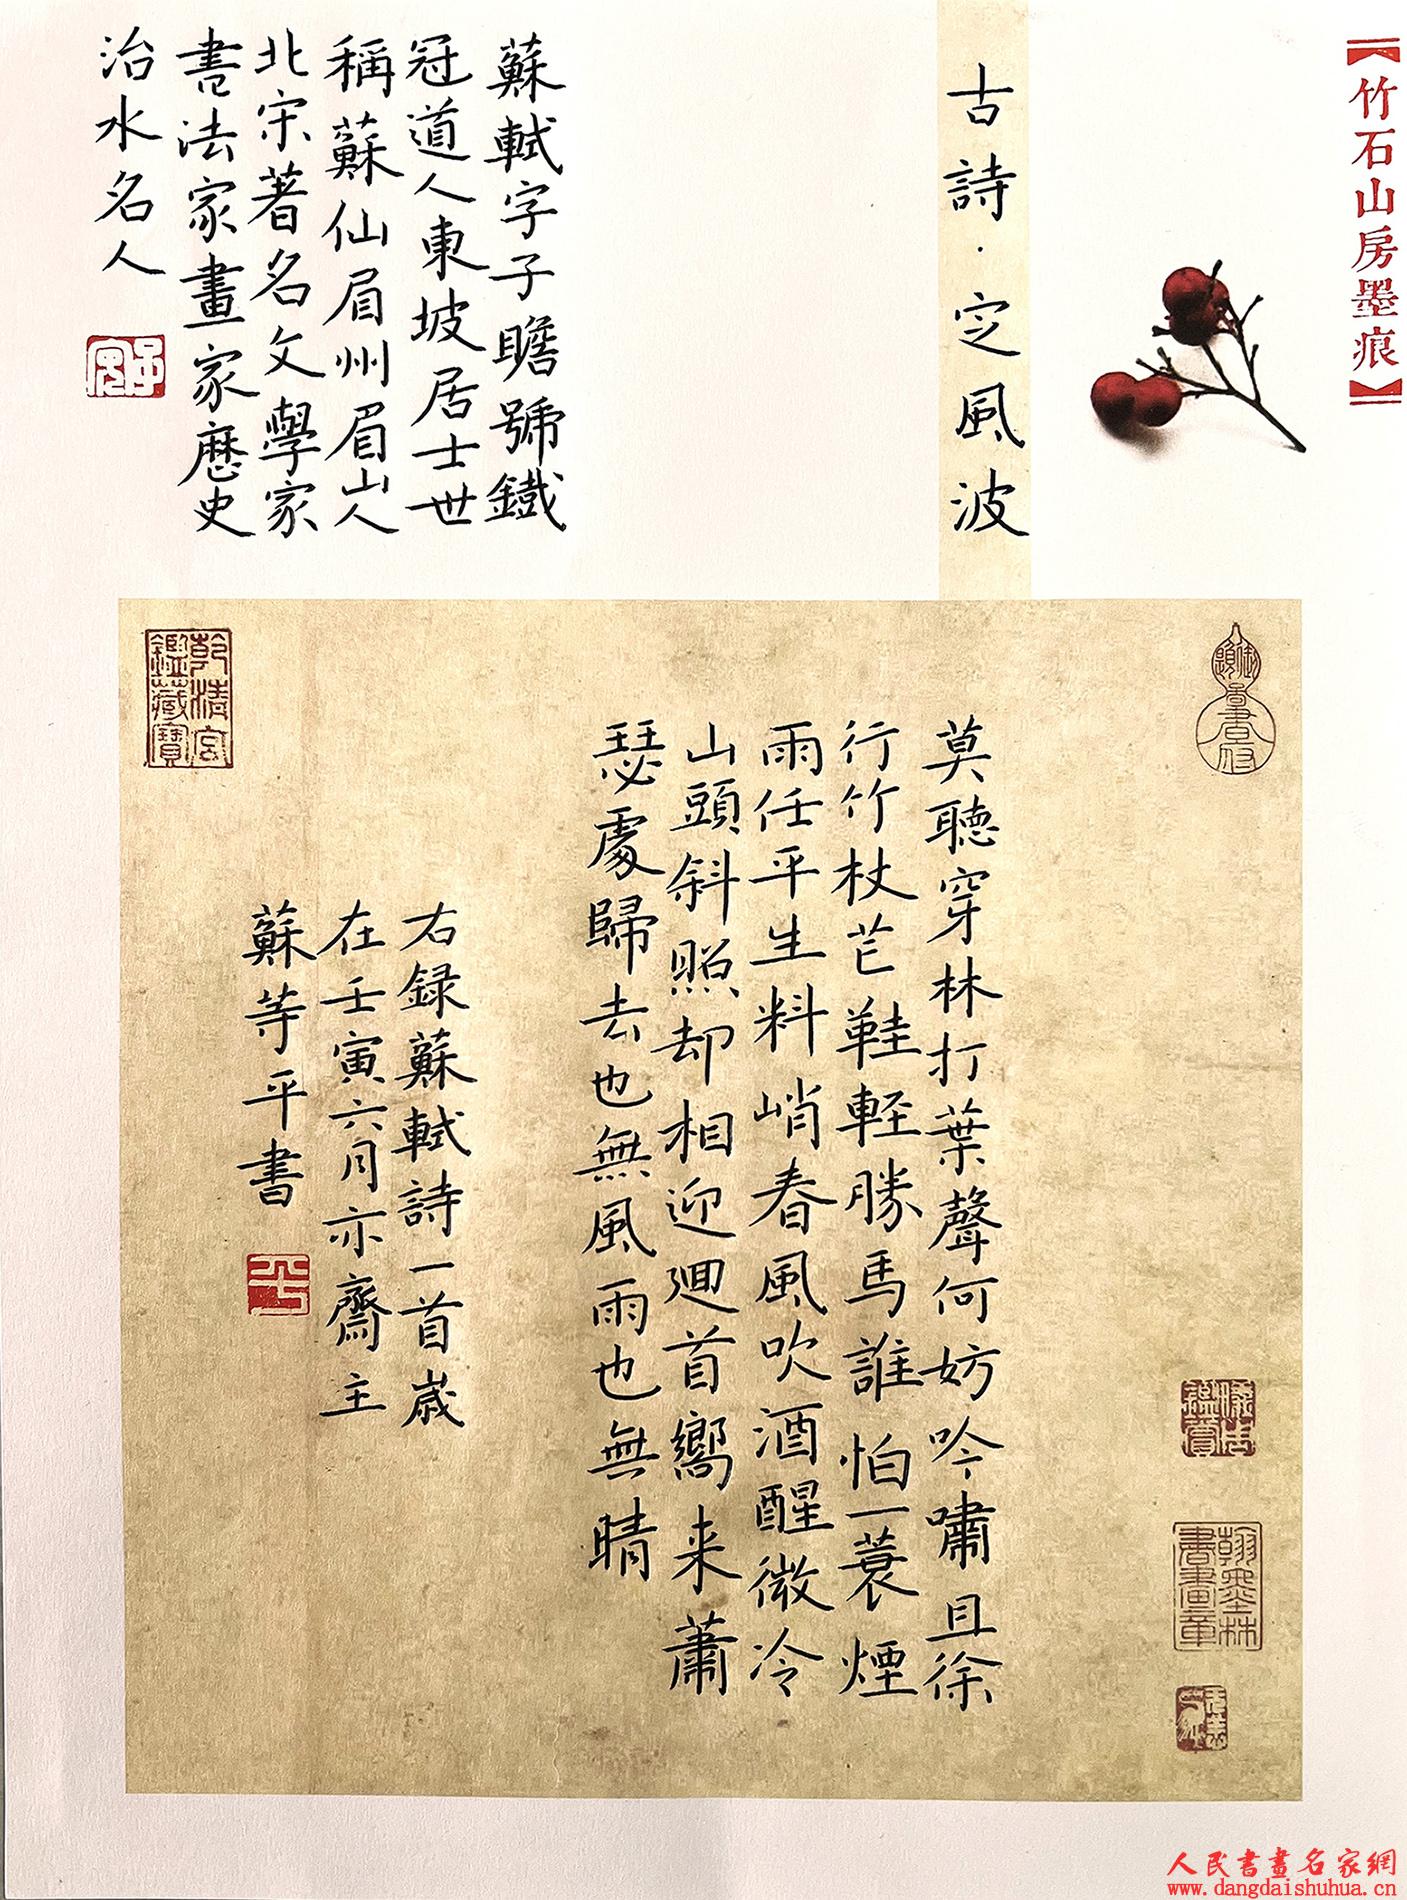 【竹石山房墨痕】
古詩·定風波
蘇軾字子瞻號鐵
冠道人東坡居士世
稱蘇仙眉州眉山人
北宋著名文學家
書法家畫家歷史
治水名人
莫聽穿林打葉聲何妨吟嘯且徐
行竹杖芒鞋輕勝馬誰怕一蓑煙
雨任平生料峭春風吹酒醒微冷
山頭斜照却相迎迴首嚮来蕭
瑟處歸去也無風雨也無晴
右録蘇軾詩一首歲
在壬寅六月亦齋主
蘇等平書
平
乾清宮
鑑藏寶
御題
書府
鑑賞
翰墨林
書畫章
人民書畫名家網
www.dangdaishuhua.cn